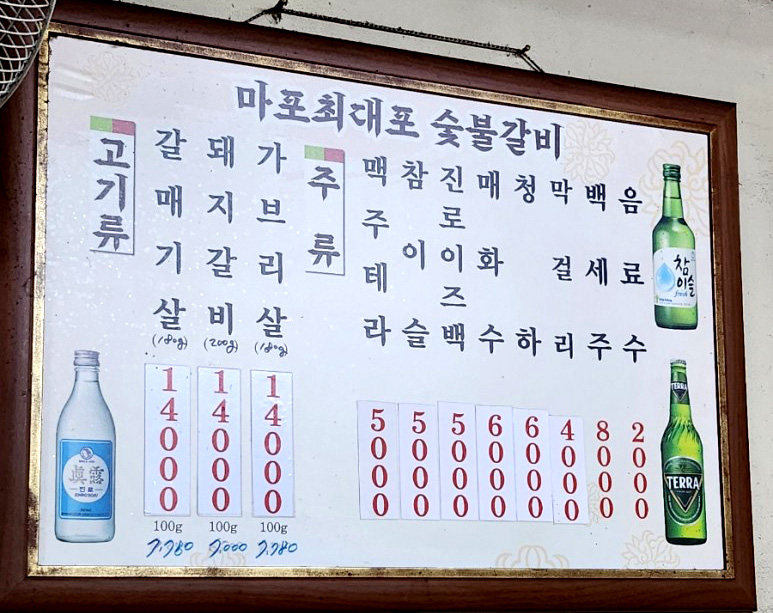 마포최대포 숯불갈비
고기류
갈매기살
(180g)
14000
100g
7.780
돼지갈비
(200g)
14000
100g
7.000
가브리살
(180g)
14000
100g
7.780
주류
맥주테라
5000
참이슬
5000
진로이즈백
5000
매화수
6000
청하
6000
막걸리
4000
백세주
8000
음료수
2000
참이슬
fresh
眞露
진로
TERRA
TERRA